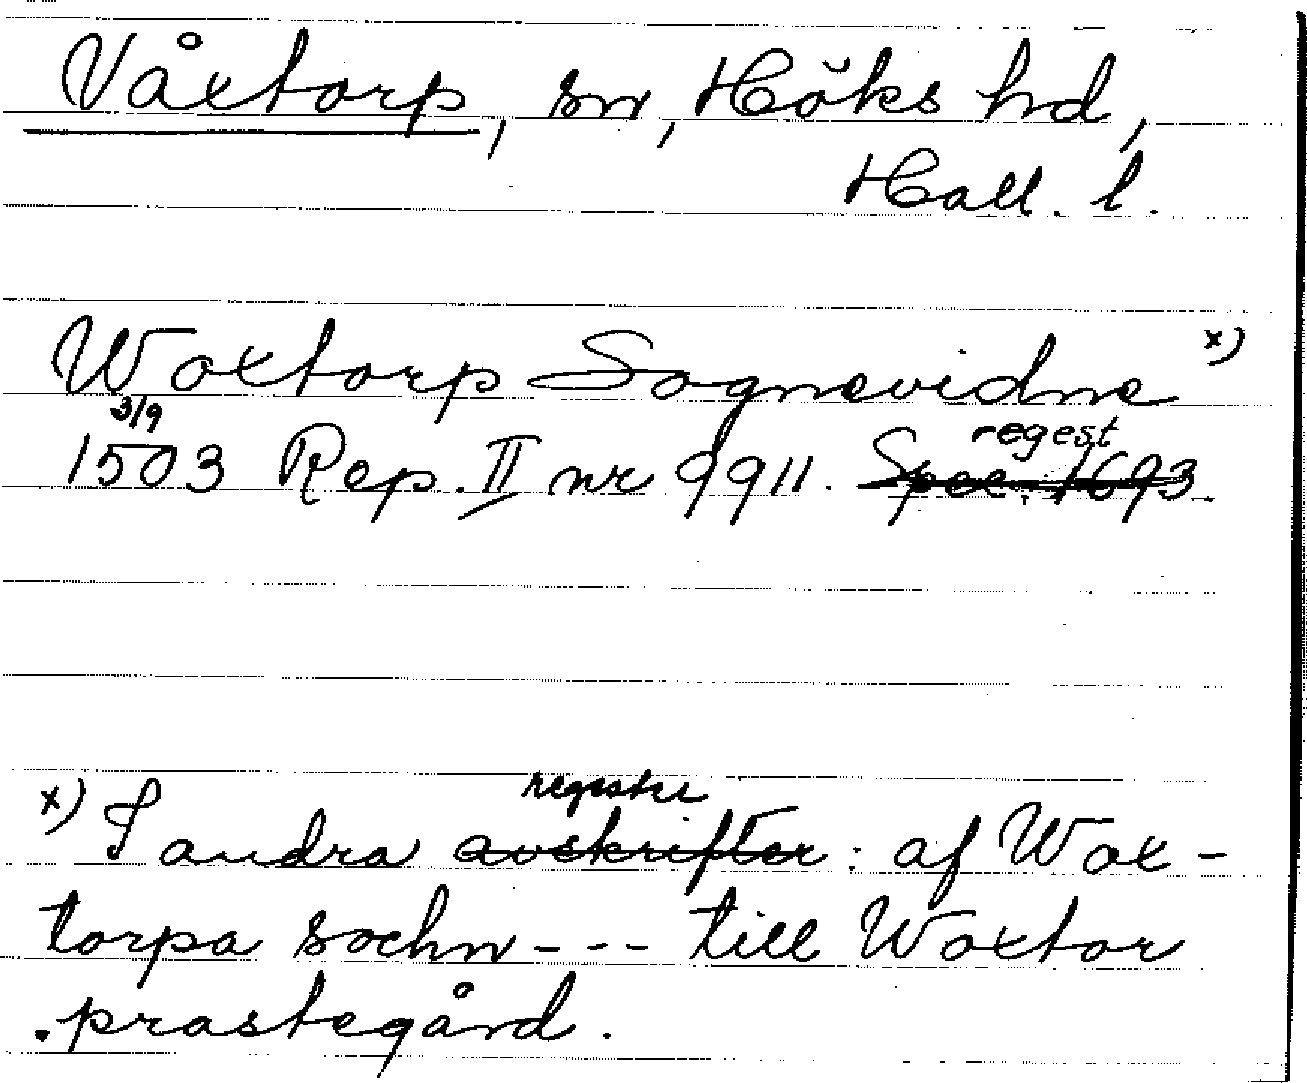 Våxtorp, sn, Höks hd,
Hall. l.
Woxtorp Sognevidne x)
3/9
1503 Rep. II nr 9911. Spec. 1693.
regest
regester
x) I andra avskrifter: af Wox-
torpa sochn --- till Woxtor
prastegård.